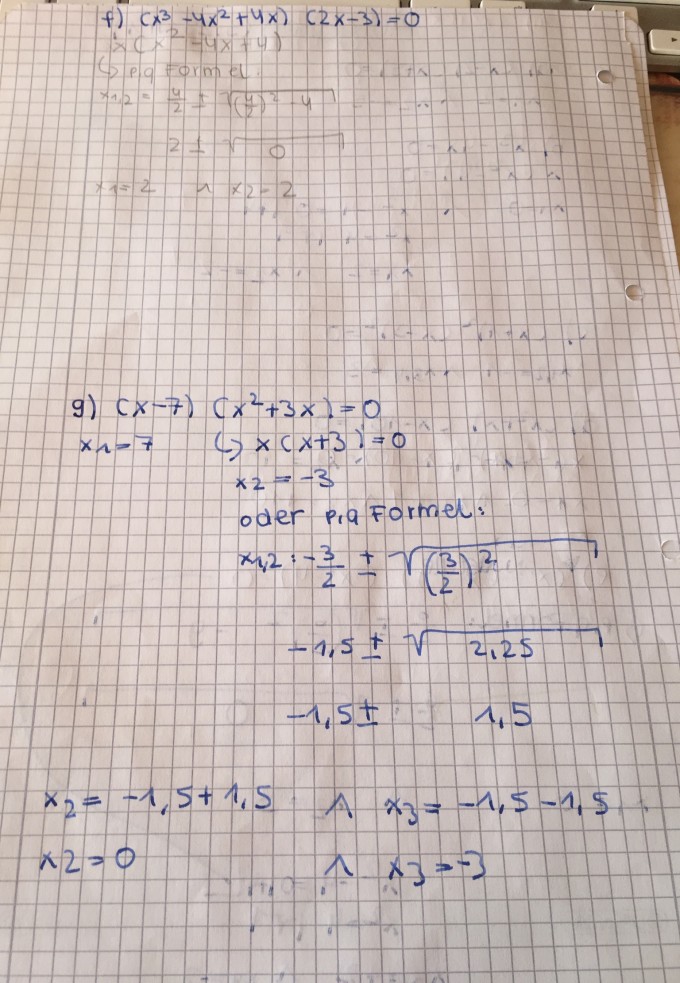 f) (x³ -4x² +4x) (2x-3)=0
x(x² -4x +4)
↳ p,q Formel:
x1,2 = 4/2 ± √(4/2)² -4
2 ± √0
x1=2 ∧ x2=2
g) (x-7) (x²+3x)=0
x1=7 ↳ x(x+3)=0
x2 = -3
oder p,q Formel:
x1,2: -3/2 ± √(3/2)²
-1,5 ± √2,25
-1,5 ± 1,5
x2 = -1,5+1,5 ∧ x3 = -1,5-1,5
x2=0 ∧ x3=-3